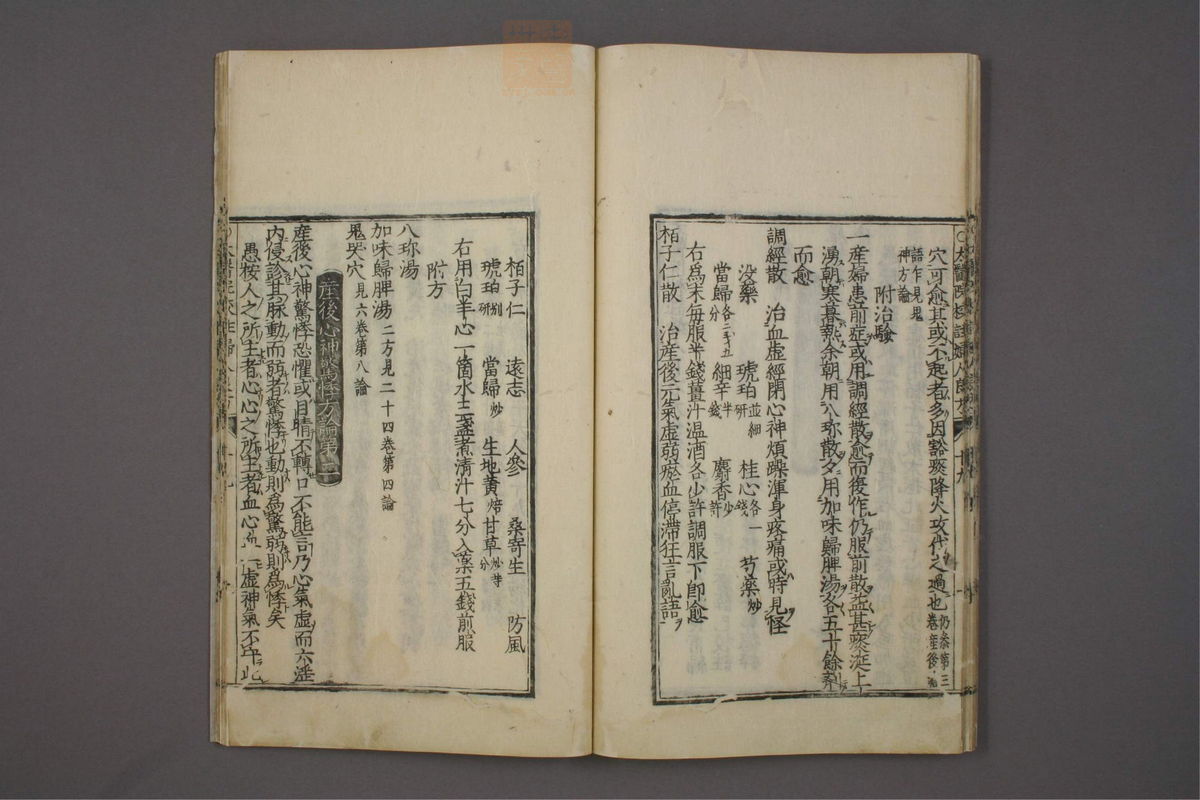 穴可愈其或不起者多因豁痰降火攻伐之過也仍参第三卷産後
語乍見鬼神方論
附治驗
一産婦患前症或用調經散愈而復作仍服前散益甚痰涎上
湧朝寒暮熱余朝用八珎散夕用加味歸脾湯各五十餘劑
而愈
調經散　治血虚經閉心神煩躁渾身疼痛或時見怪
没藥　琥珀並細研　桂心各一錢　芍藥炒
當歸各二手五分　細辛半錢　麝香少許
右爲末毎服半錢薑汁温酒各少許調服下卽愈
栢子仁散　治産後元氣虚弱瘀血停滯狂言亂語
栢子仁　遠志　人參　桑寄生　防風
琥珀別研　當歸炒　生地黄焙　甘草炒等分
右用白羊心一箇水三盞煮清汁七分入藥五錢煎服
附方
八珎湯
加味歸脾湯二方見二十四卷第四論
鬼哭穴見六卷第八論
産後心神驚悸方論第二
産後心神驚悸恐懼或目睛不轉口不能言乃心氣虚而六淫
内侵診其脉動而弱者驚悸也動則爲驚弱則爲悸矣
愚按人之所主者心心之所主者血心血一虚神氣不守此